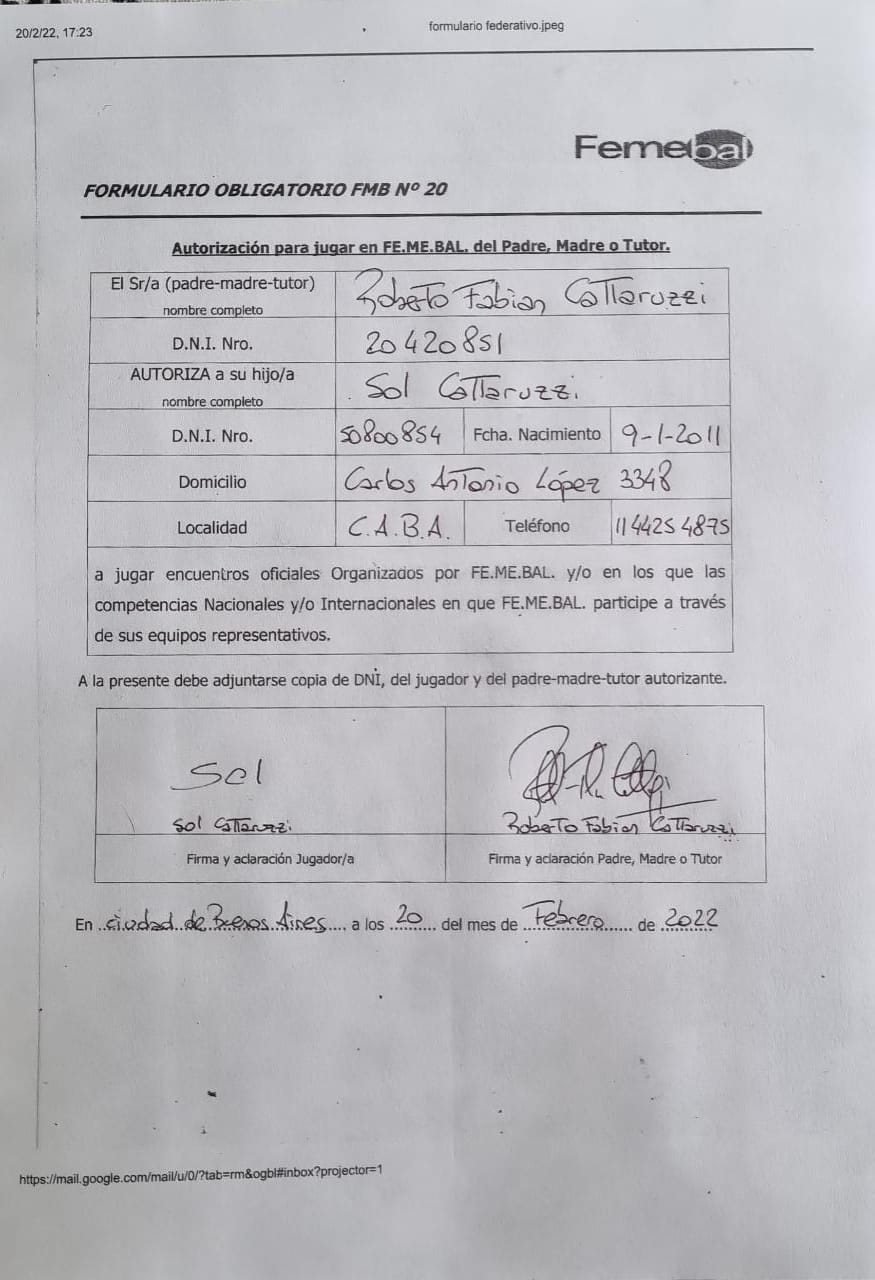 20/2/22, 17:23 formulario federativo.jpeg
Femebal
FORMULARIO OBLIGATORIO FMB Nº 20
Autorización para jugar en FE.ME.BAL. del Padre, Madre o Tutor.
El Sr/a (padre-madre-tutor) nombre completo Roberto Fabian Cattaruzzi
D.N.I. Nro. 20420851
AUTORIZA a su hijo/a nombre completo Sol Cattaruzzi
D.N.I. Nro. 50800854 Fcha. Nacimiento 9-1-2011
Domicilio Carlos Antonio López 3348
Localidad C.A.B.A. Teléfono 1144254875
a jugar encuentros oficiales Organizados por FE.ME.BAL. y/o en los que las
competencias Nacionales y/o Internacionales en que FE.ME.BAL. participe a través
de sus equipos representativos.
A la presente debe adjuntarse copia de DNI, del jugador y del padre-madre-tutor autorizante.
Sol
Sol Cattaruzzi Roberto Fabian Cattaruzzi
Firma y aclaración Jugador/a Firma y aclaración Padre, Madre o Tutor
En ciudad de Buenos Aires a los 20 del mes de Febrero de 2022
https://mail.google.com/mail/u/0/?tab=rm&ogbl#inbox?projector=1